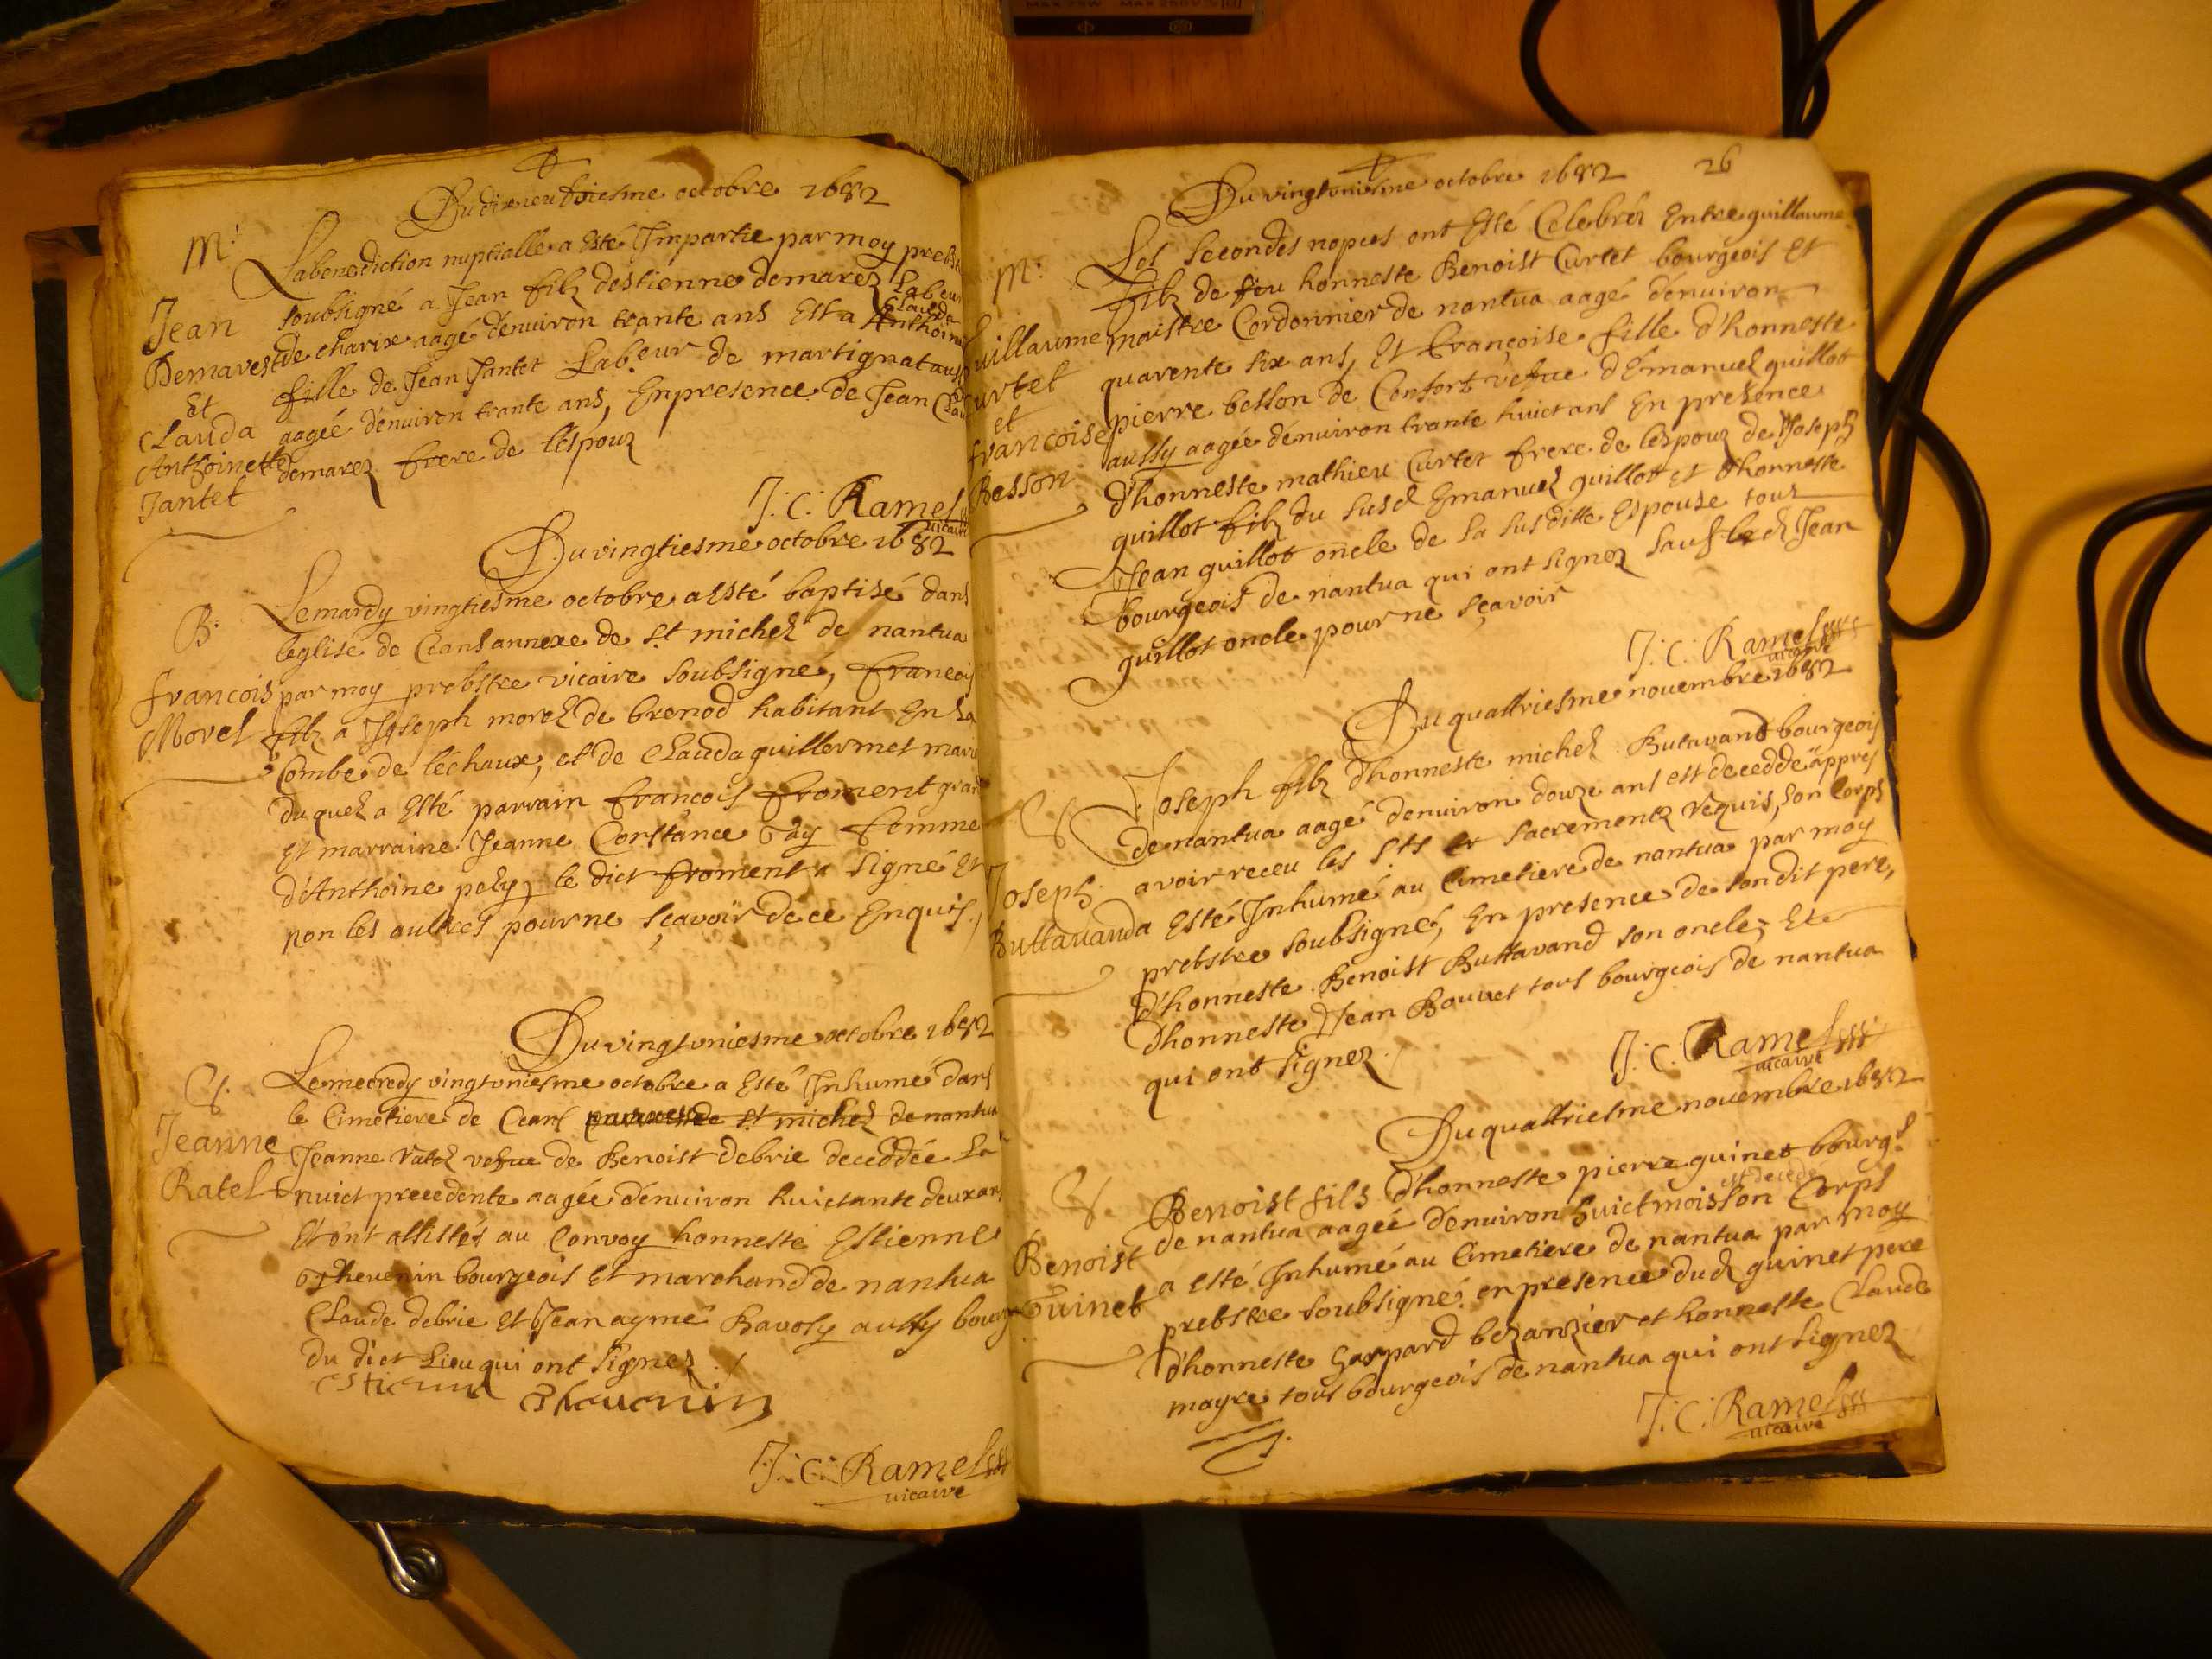 Du dixneufviesme octobre 1682
M.
La benediction nuptialle a esté Impartie par moy prebst
soubsigné a Jean filz d'estienne demarez Labeur
Jean
Demarest
Et
Clauda
Anthoinette
Jantet
de charix aagé d'enuiron trante ans Est a Clauda Anthoine
fille de Jean Jantet Labeur de martignat aussy
aagée d'enuiron trante ans, En presence de Jean Clau
demarez frere de l'espouz
J. C. Ramel
vicaire
Du vingtiesme octobre 1682
B.
francois
Morel
Le mardy vingtiesme octobre a esté baptisé dans
leglise de Ceans annexe de st michel de nantua
par moy prebstre vicaire soubsigné, francois
filz a Joseph morel de brenod habitant En La
Combe de lechaux, et de Clauda guillermet marie
duquel a Esté parrain francois froment grand
Et marraine Jeanne Constance Gay femme
d'Anthoine poly, le dict froment a signé Et
non les aultres pour ne sçavoir de ce Enquis
Du vingtuniesme octobre 1682
S.
Jeanne
Ratel
Le mecredy vingtuniesme octobre a Esté Inhumé dans
le Cimetiere de Ceans de st michel de nantua
Jeanne ratel vefue de Benoist debrie deceddée La
nuict precedente aagée d'enuiron huictante deux ans
Et ont assistés au Convoy honneste Estienne
Thevenin bourgeois Et marchand de nantua
Claude debrie Et Jean aymé Ravoly aussy bourg
du dict Lieu qui ont signez
estienne Theuenin
J. C. Ramel
vicaire
Du vingtuniesme octobre 1682
26
M.
Guillaume
Curtet
et
francoise
Besson
Les secondes nopces ont Esté Celebréz Entre guillaume
filz de feu honneste Benoist Curtet bourgeois Et
maistre Cordonnier de nantua aagé d'enuiron
quarente six ans, Et françoise fille d'honneste
pierre besson de Confort vefue d'Emanuel guillot
aussy aagée d'enuiron trante huict ans En presence
d'honneste mathieu Curtet frere de lespouz de Joseph
guillot filz du susd Emanuel guillot Et d'honneste
Jean guillot oncle de la susditte Espouze tous
bourgeois de nantua qui ont signez sauf led Jean
guillot oncle pour ne sçavoir
J. C. Ramel
vicaire
Du quattriesme nouembre 1682
S.
Joseph
Buttavanda
Joseph filz d'honneste michel Butavand bourgeois
de nantua aagé denuiron douze ans est deceddé appres
avoir receu les sts et sacrementz requis, son Corps
a Esté Inhumé au Cimetiere de nantua par moy
prebstre soubsigné, En presence de son dit pere,
d'honneste Benoist Buttavand son oncle, Et
d'honneste Jean Bouvet tous bourgeois de nantua
qui ont signez
J. C. Ramel
vicaire
Du quattriesme nouembre 1682
S.
Benoist
Guinet
Benoist fils d'honneste pierre guinet bourgs
de nantua aagée d'enuiron huict mois est decedé son Corps
a esté Inhumé au Cimetiere de nantua par moy
prebstre soubsigné en presence dud guinet pere
d'honneste Gaspard bezanzier et honneste Claude
mayre tous bourgeois de nantua qui ont signez
J. C. Ramel
vicaire